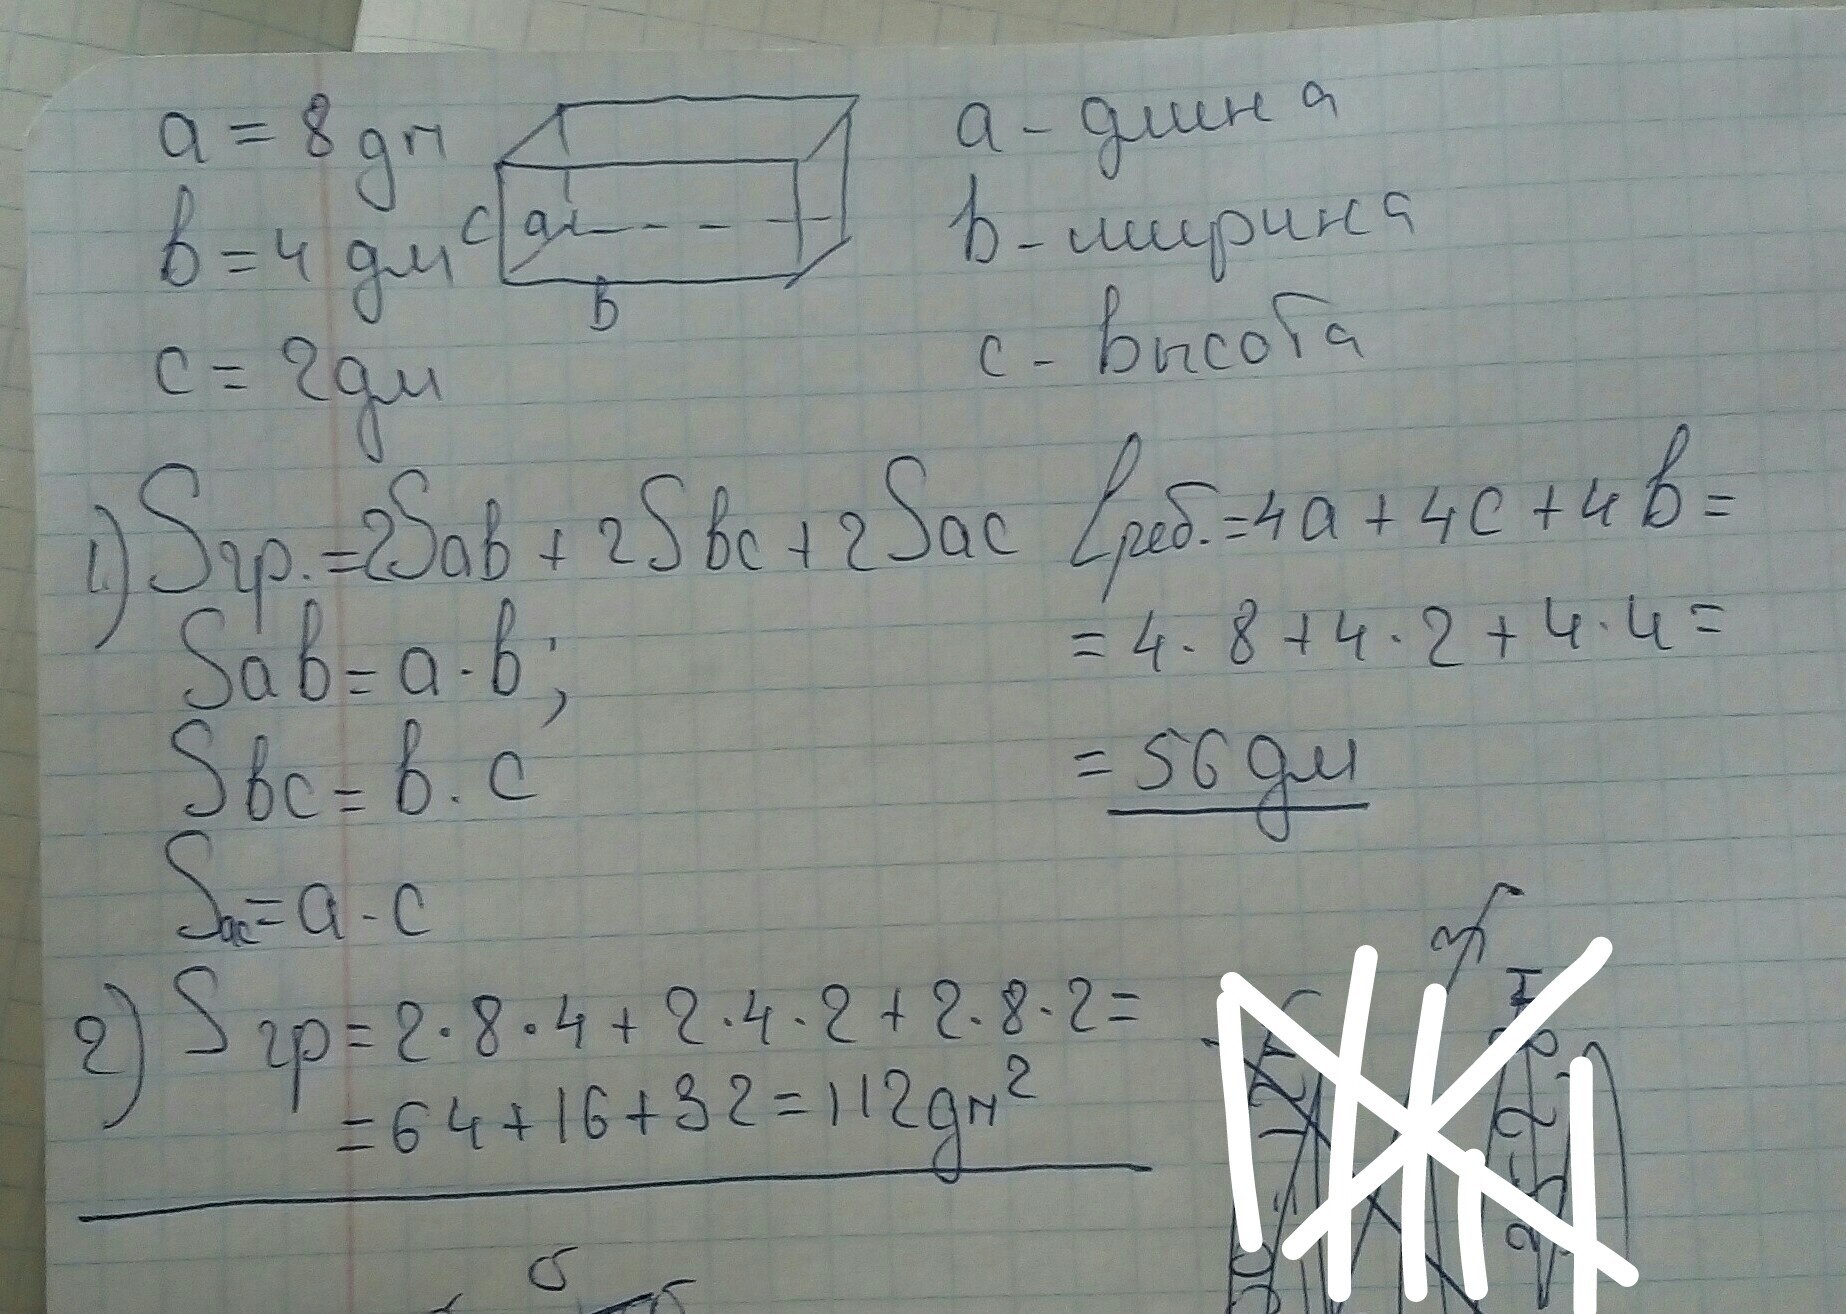 a = 8 дм
b = 4 дм
c = 2 дм
c a
b
a - длина
b - ширина
c - высота
1) Sгр. = 2Sab + 2Sbc + 2Sac
Sab = a · b;
Sbc = b · c
Sac = a · c
Lреб. = 4a + 4c + 4b =
= 4 · 8 + 4 · 2 + 4 · 4 =
= 56 дм
2) Sгр = 2 · 8 · 4 + 2 · 4 · 2 + 2 · 8 · 2 =
= 64 + 16 + 32 = 112 дм²